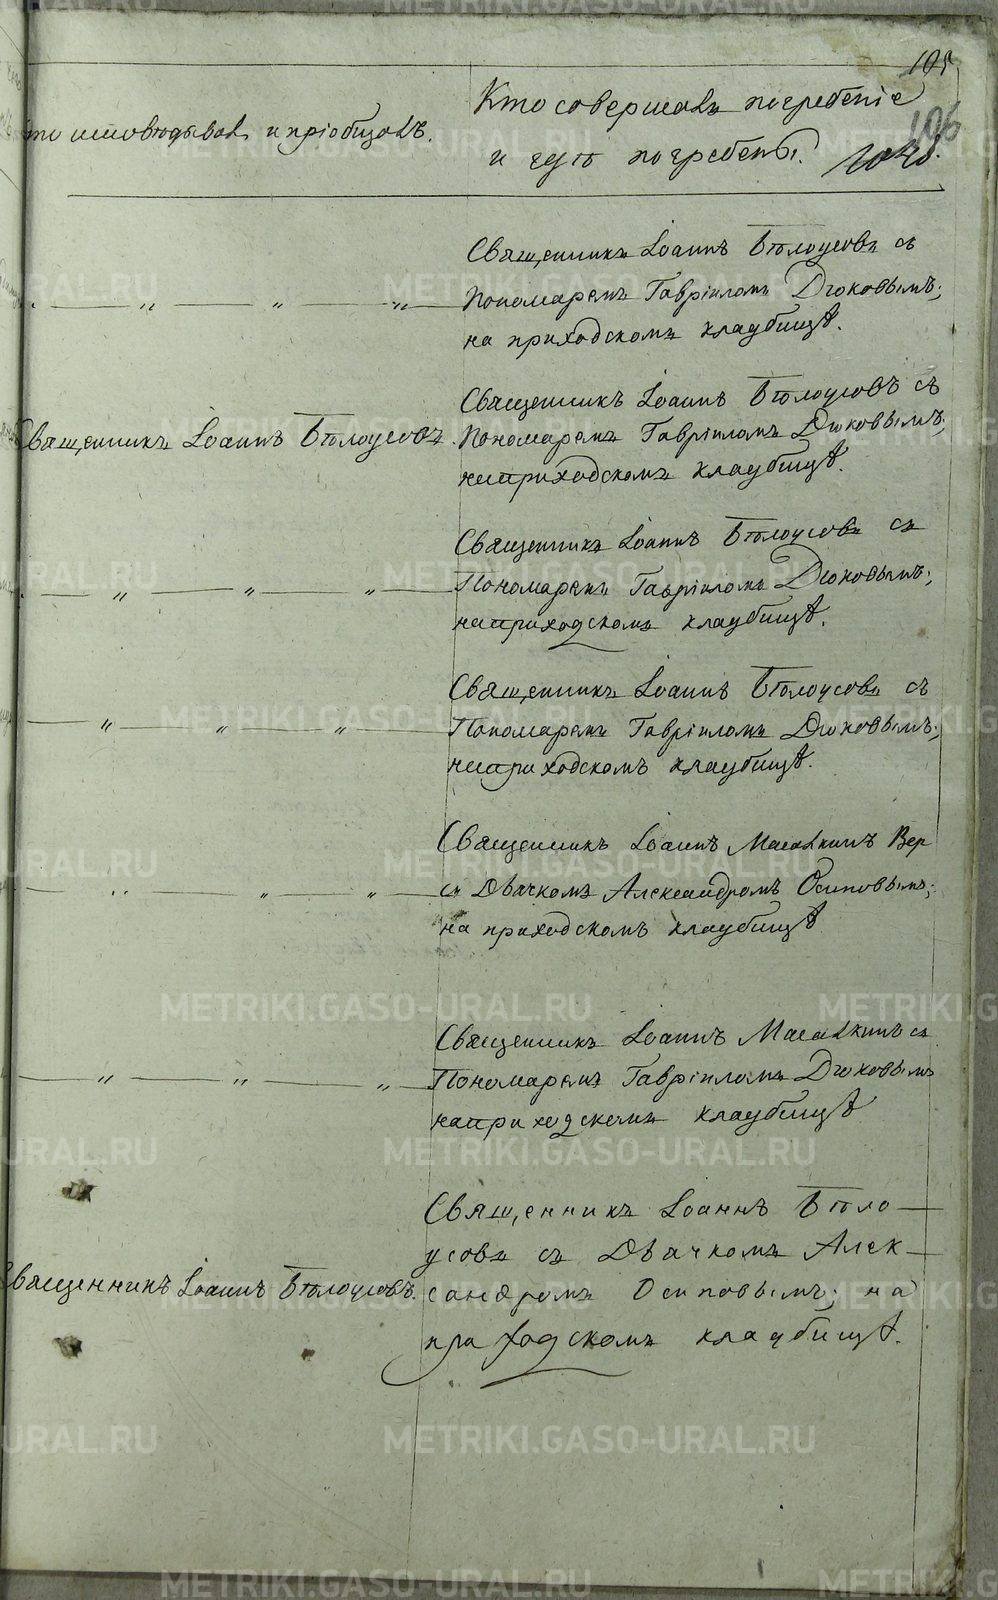 105
106
Кто совершалъ погребенiе
то исповѣдывалъ и прiобщалъ.
и гдѣ погребены.
Священникъ Iоаннъ Бѣлоусовъ съ
Пономаремъ Гаврiиломъ Дюковымъ;
на приходскомъ кладбищѣ.
Священникъ Iоаннъ Бѣлоусовъ съ
Священникъ Iоаннъ Бѣлоусовъ.
Пономаремъ Гаврiиломъ Дюковымъ;
на приходскомъ кладбищѣ.
Священникъ Iоаннъ Бѣлоусовъ съ
Пономаремъ Гаврiиломъ Дюковымъ;
на приходскомъ кладбищѣ.
Священникъ Iоаннъ Бѣлоусовъ съ
Пономаремъ Гаврiиломъ Дюковымъ;
на приходскомъ кладбищѣ.
Священникъ Iоаннъ
съ Дьячкомъ Александромъ Осиповымъ;
на приходскомъ кладбищѣ
Священникъ Iоаннъ съ
Пономаремъ Гаврiиломъ Дюковымъ
на приходскомъ кладбищѣ
Священникъ Iоаннъ Бѣло-
усовъ съ Дьячкомъ Алек-
Священникъ Iоаннъ Бѣлоусовъ.
сандромъ Осиповымъ; на
приходскомъ кладбищѣ.
METRIKI.GASO-URAL.RU